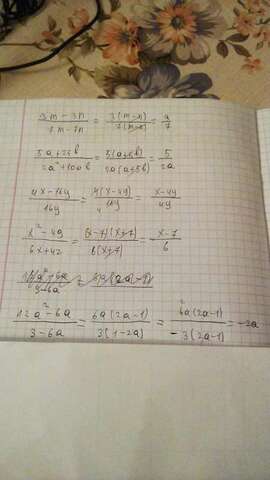 (3m - 3n)/(7m - 7n) = 3(m-n)/7(m-n) = 3/7
(5a + 25b)/(2a² + 10ab) = 5(a+5b)/2a(a+5b) = 5/2a
(4x - 16y)/16y = 4(x-4y)/16y = (x-4y)/4y
(x² - 49)/(6x + 42) = (x-7)(x+7)/6(x+7) = (x-7)/6
(12a² - 6a)/(3 - 6a) = 6a(2a-1)/3(1-2a) = 6a(2a-1)/-3(2a-1) = -2a